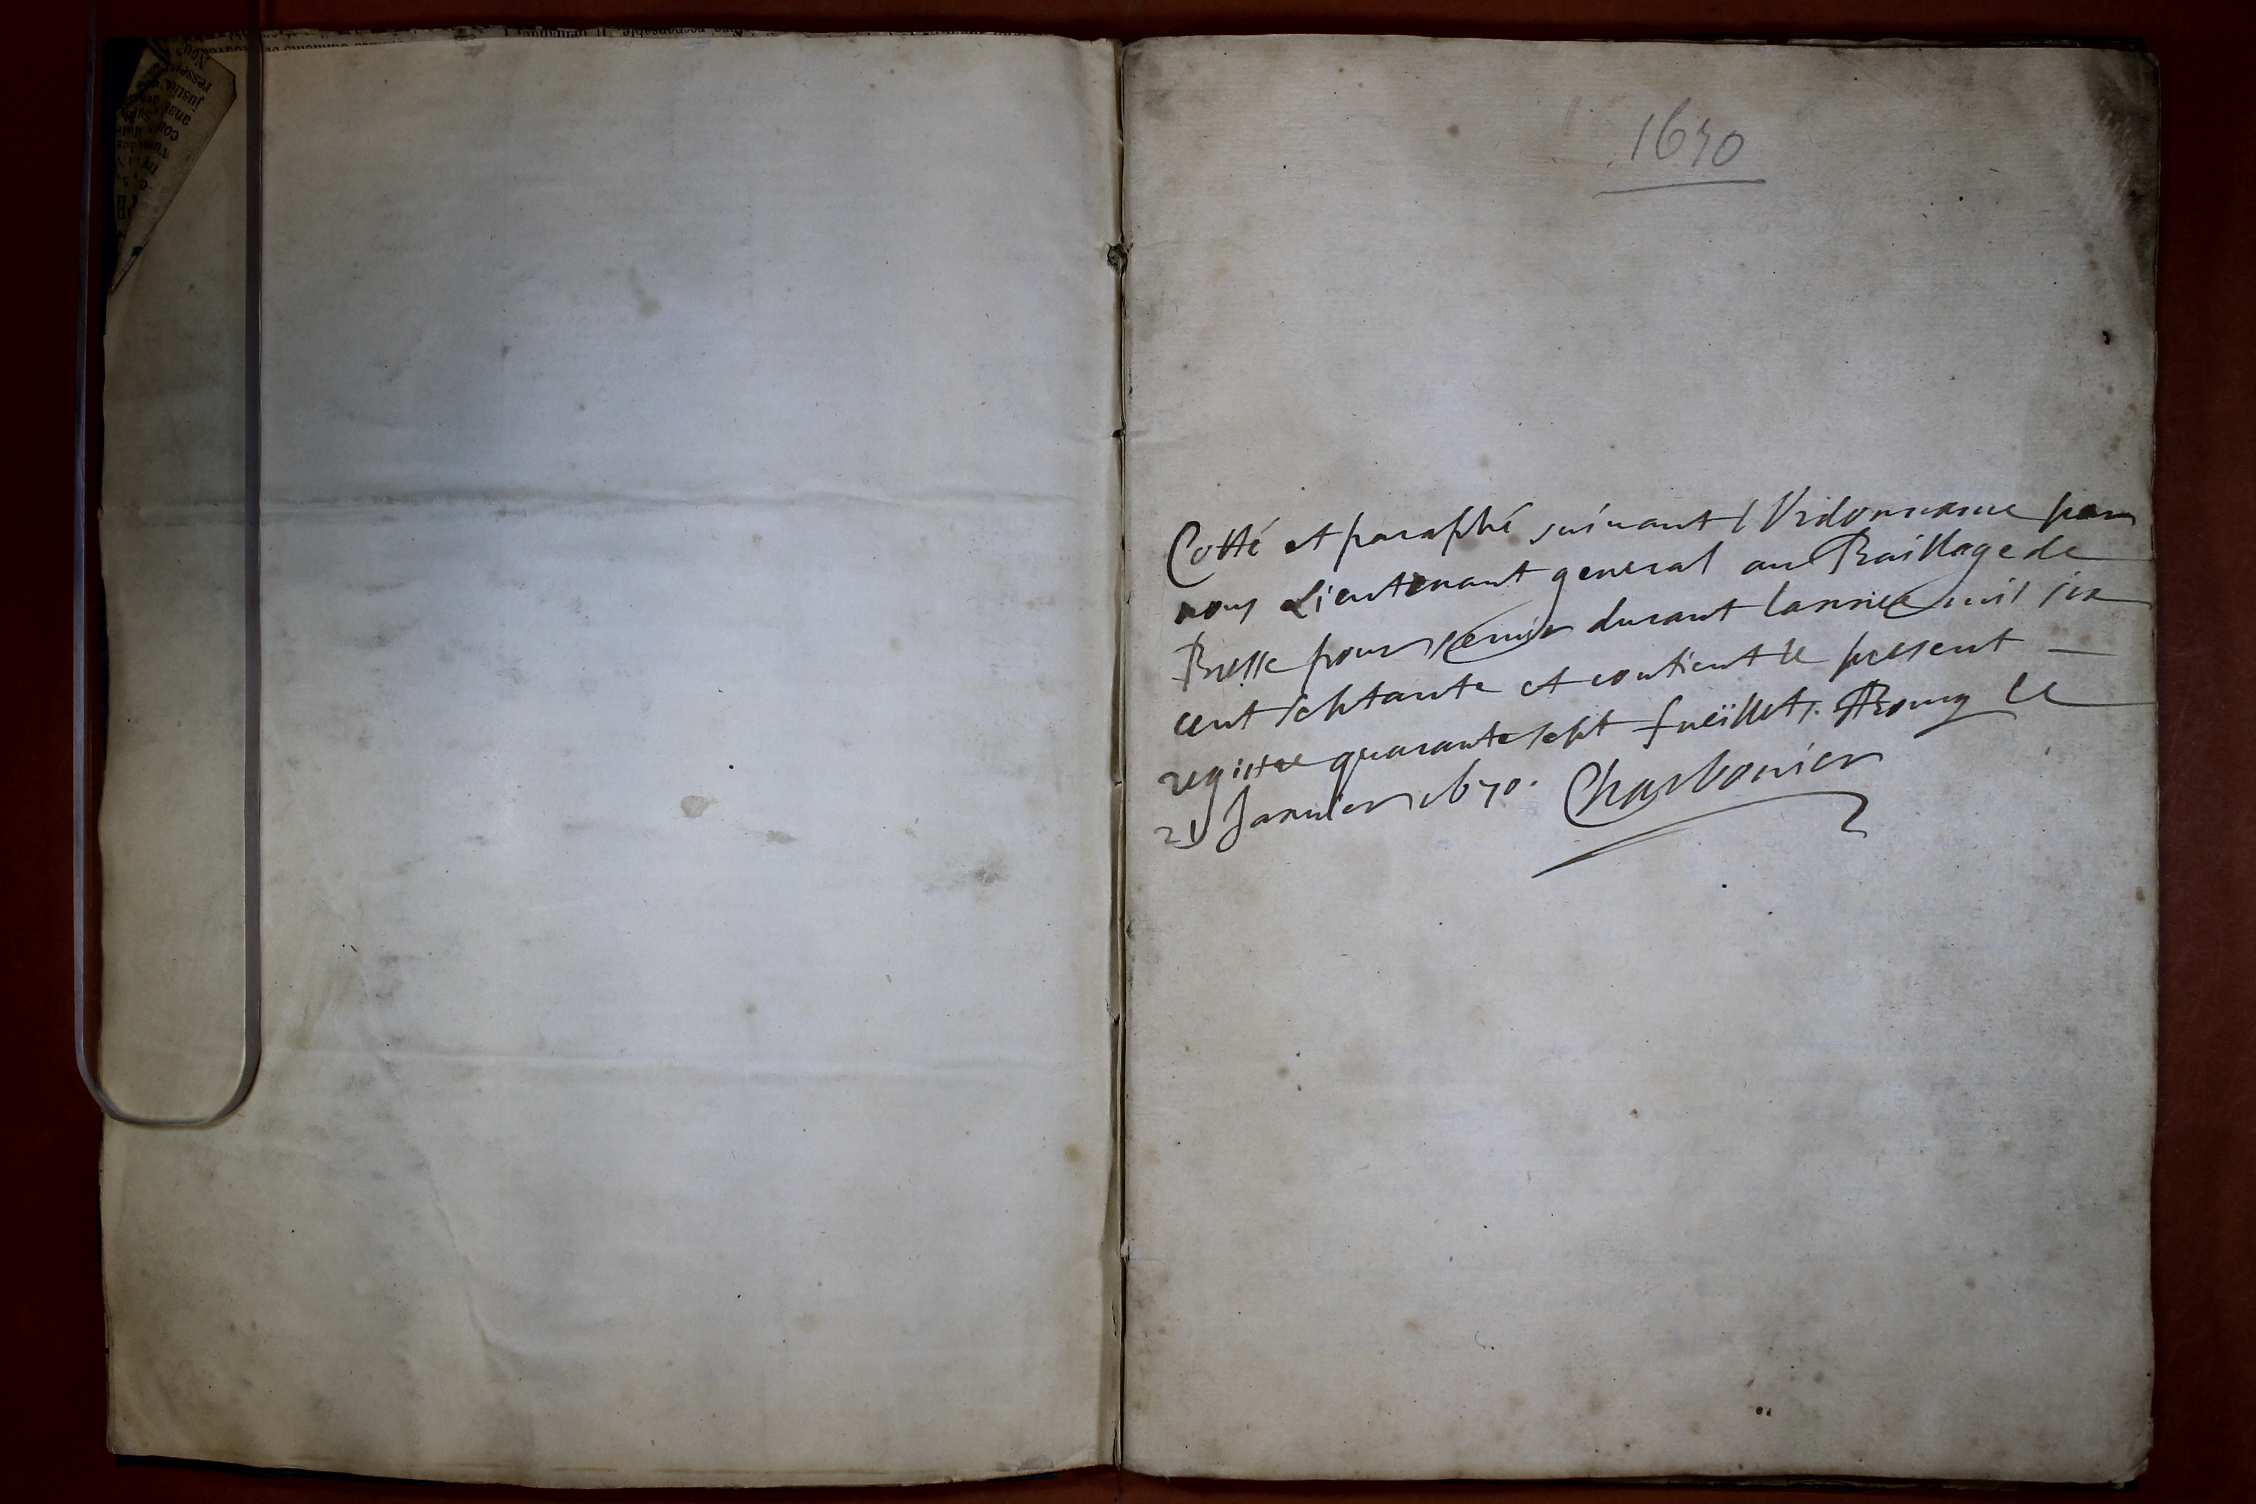 1670
Cotté et paraphé suivant l'Ordonnance par
nous Lieutenant general au Bailliage de
Bresse pour servir durant lannee mil six
cent septante et contient le present
registre quarante sept fueïllets. A Bourg le
21 Januier 1670. Charbonier